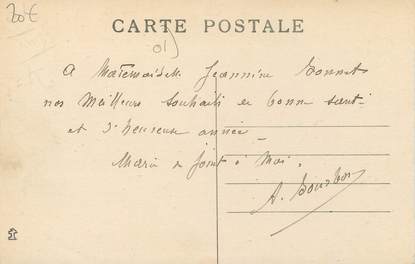 20€
CARTE POSTALE
(01)
A Mademoiselle Jeannine
nos Meilleurs Souhaits de bonne santé
et d'heureuse année
Marie se joint à Moi.
A.